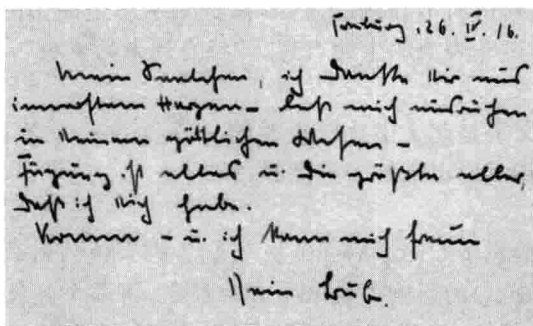 Freiburg, 26. IV. 16.
Mein Seelchen, ich danke Dir aus
innerstem Herzen – laß mich ausruhen
in Deinem göttlichen Wesen –
Fügung ist alles u. die größte aller,
daß ich Dich habe.
Komm – u. ich kann mich freun
Dein Bub.